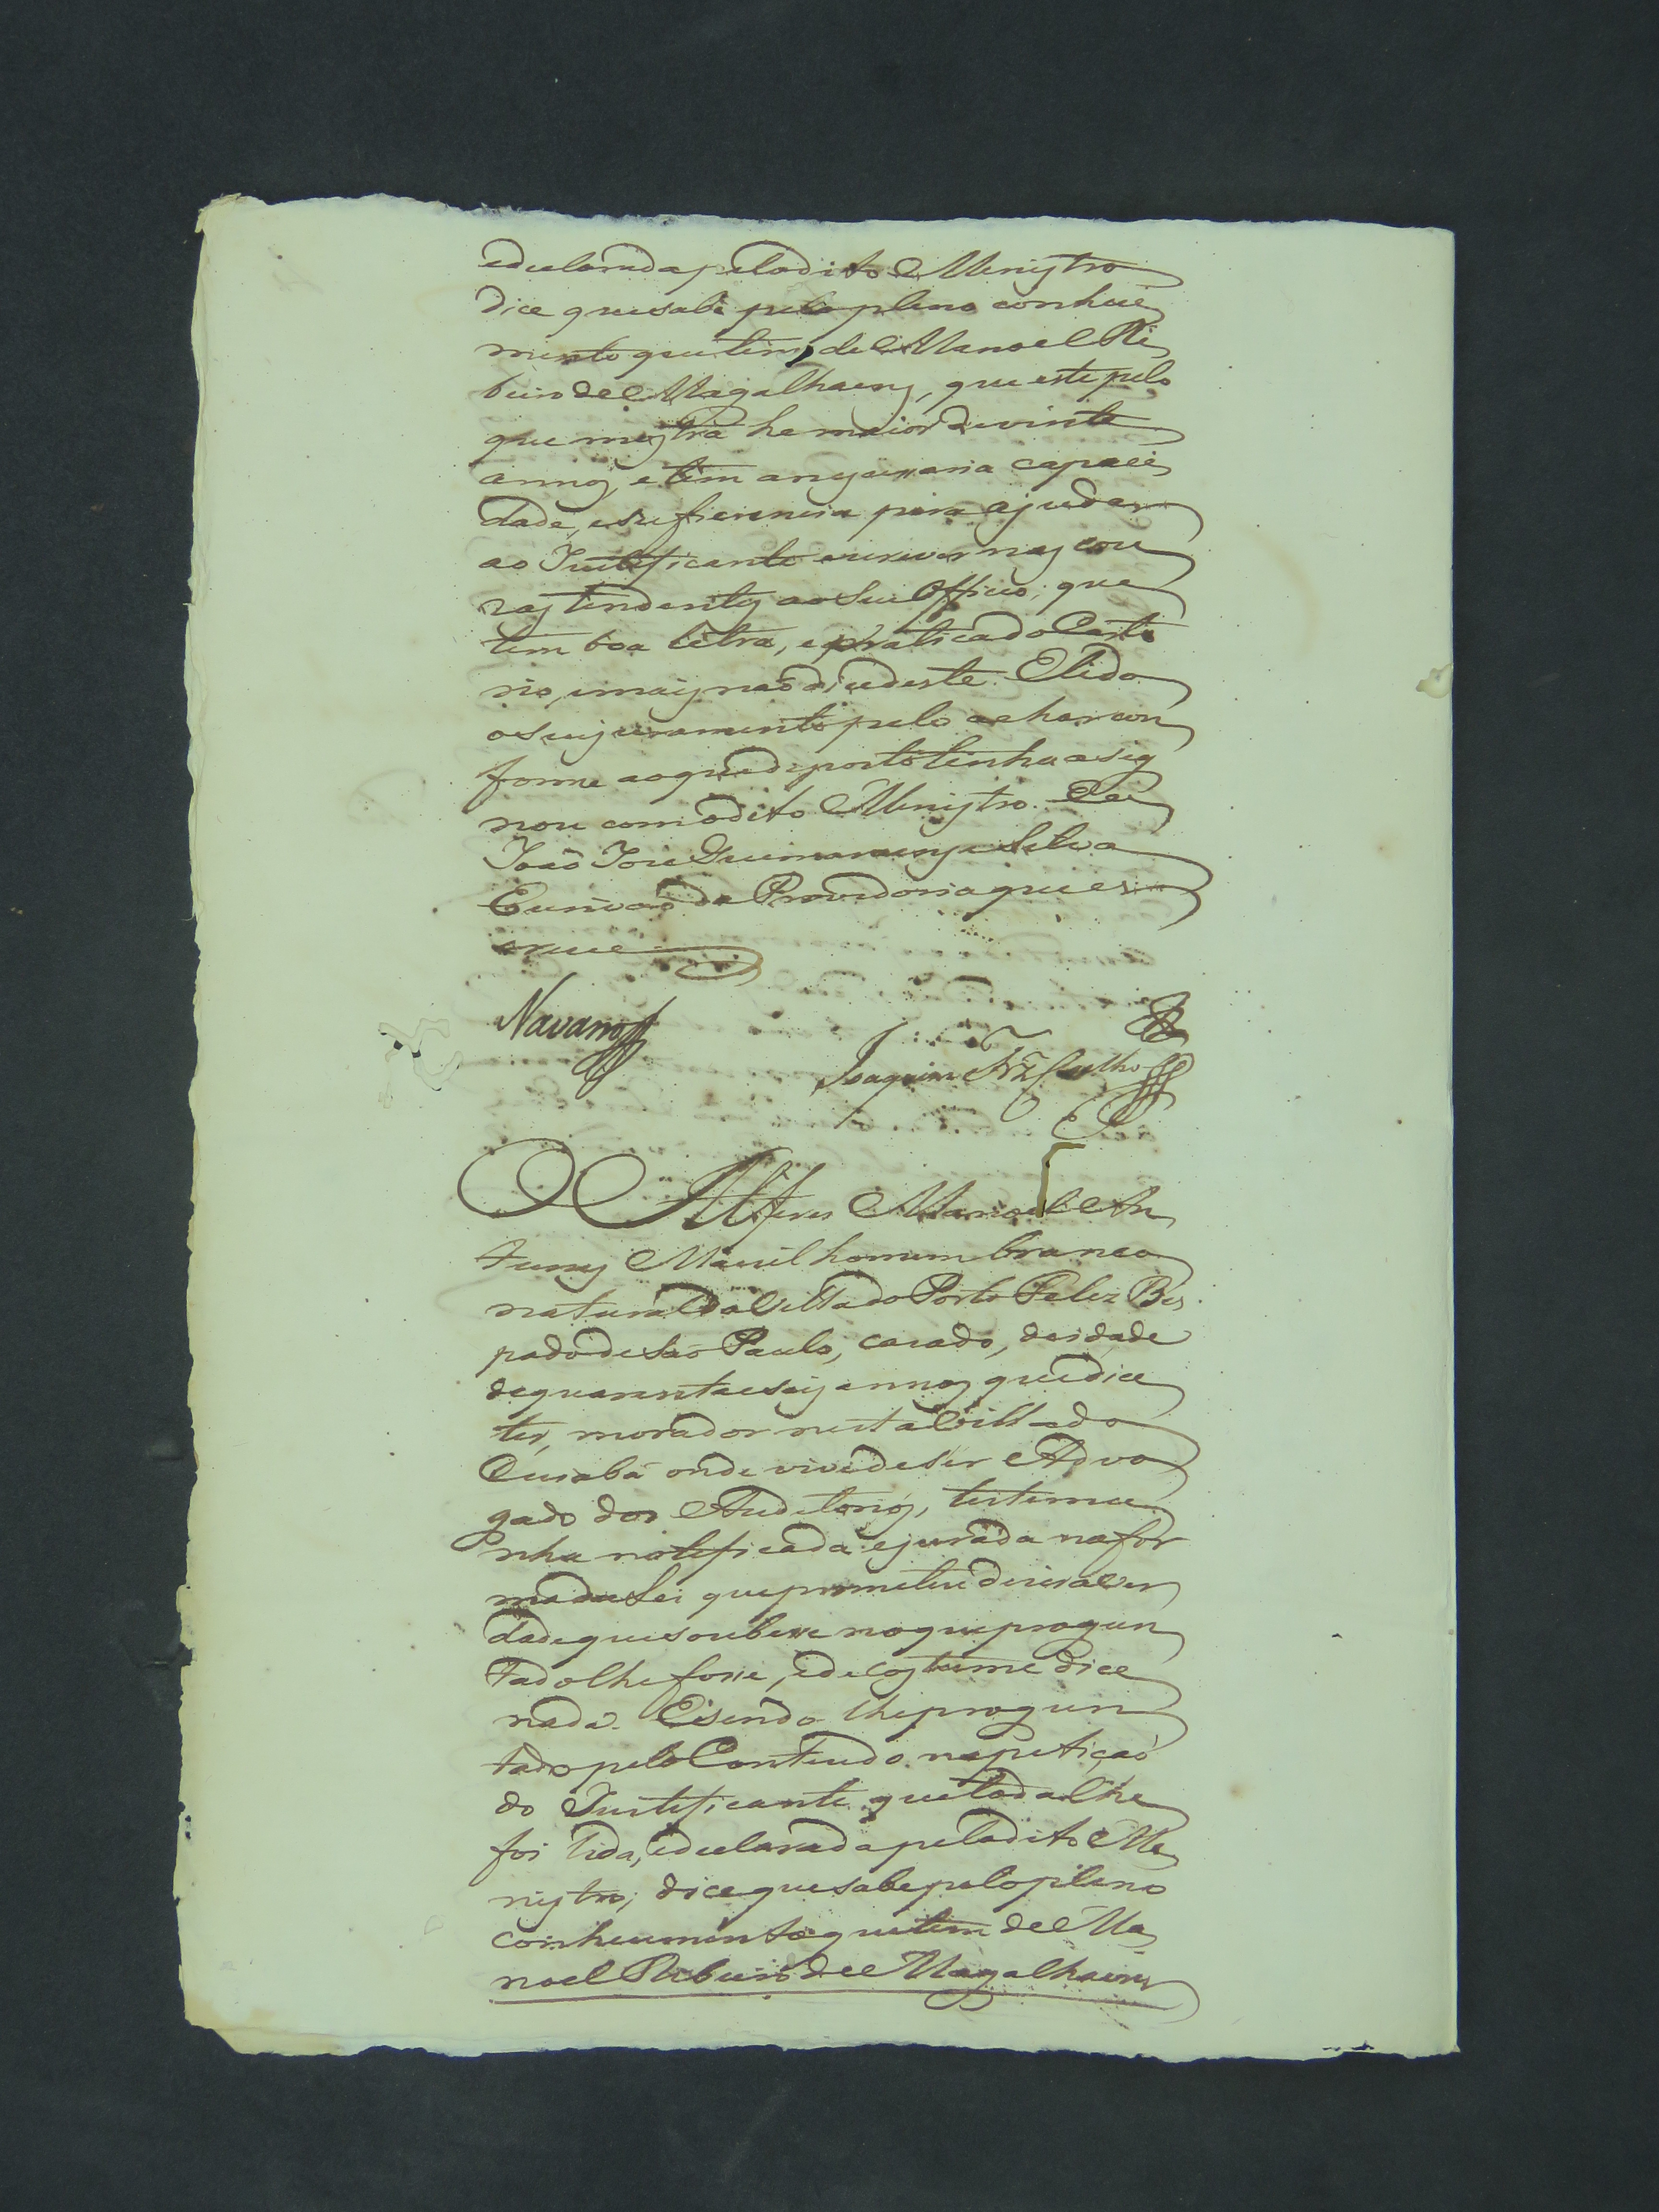 edeclarada pelo dito Menistro
dice que sabe pelo pleno conheci
mento que tem de Manoel Ri
beiro de Magalhaens, que este pelo
que mostra he maior de vinte
annos, e tem a necessaria capaci
dade, esuficiencia para ajudar
ao Justificante escrever nas cou
zas tendentes ao seu Officio; que
tem boa letra, e praticado Carto
rio, emais naõ dice deste. E lido
o seu juramento pelo achar con
forme ao que deposto tinha asig
nou com o dito Menistro. Eu
Joaõ Joze Guimaraens e Silva
Escrivaõ da Provedoria que es
crevi
Navarro
Joaquim Frz Coelho
O Alferes Manoel An
tunes Maciel homem branco
natural da Villa do Porto Felez Bis
pado de Saõ Paulo, cazado, de idade
de quarenta e seis annos que dice
ter, morador nesta Villa do
Cuiabá onde vive de ser Advo
gado dos Auditorios, testemu
nha noteficada e jurada na for
ma da Lei que prometeu dizer a ver
dade que soubesse no que pregun
tado lhe fosse, e de costume dice
nada. E sendo lhe pregun
tado pelo Contendo na petiçaõ
do Justificante que toda lhe
foi lida, edeclarada pelo dito Me
nistro; dice que sabe pelo pleno
conhecimento que tem de Ma
noel Ribeiro de Magalhaens